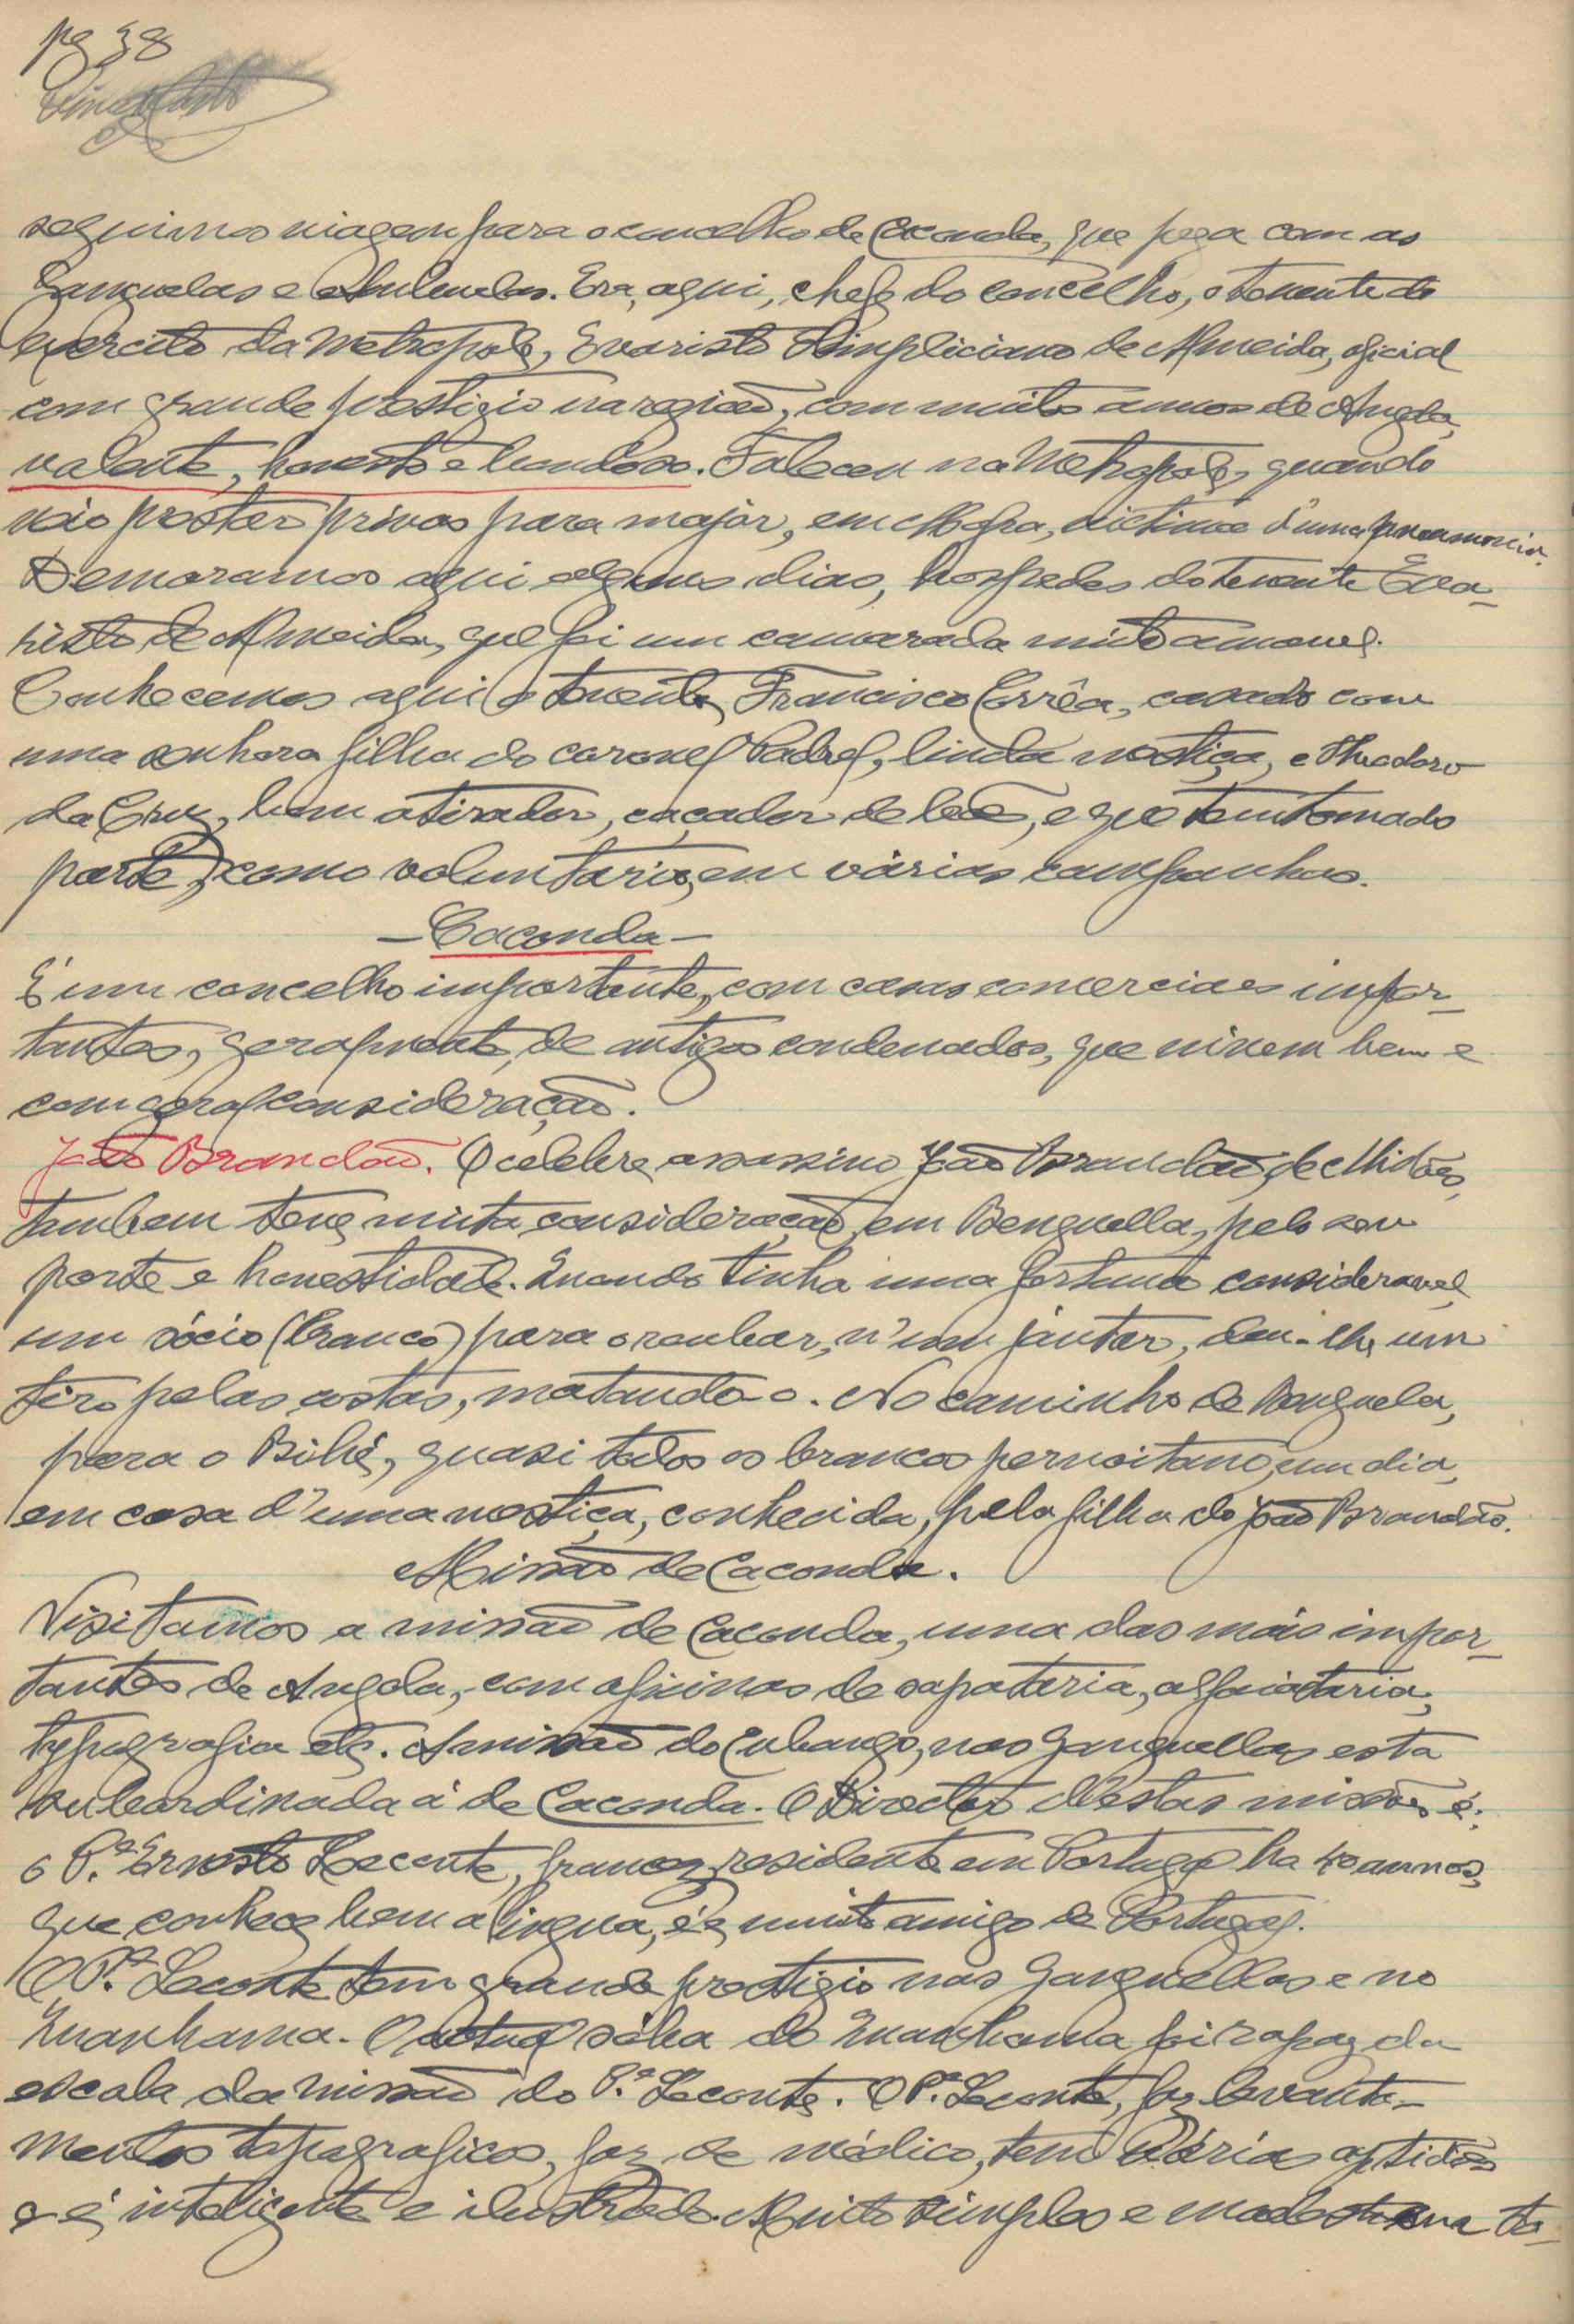 pg 38
seguimos viagem para o concelho de Caconda, que pega com as
Ganguelas e Ambuelas. Era, aqui, chefe do concelho, o tenente do
exercito da Metropole, Evaristo Simpliciano de Almeida, oficial
com grande prestigio na região, com muitos annos de Angola,
valente, honesto e bondoso. Faleceu na Metropole, quando
ia prestar provas para major, em Mafra, victima d'uma pneumonia.
Demoramos aqui alguns dias, hospedes do tenente Eva-
risto de Almeida, que foi um camarada muito amavel.
Conhecemos aqui o tenente Francisco Corrêa, casado com
uma senhora filha do coronel Padrel, linda mestiça, e Theodoro
da Cruz, bom atirador, caçador de leão, e que tem tomado
parte, como voluntario, em várias campanhas.
— Caconda —
É um concelho importante, com casas comerciaes impor-
tantes, geralmente, de antigos condenados, que vivem bem e
com geral consideração.
João Brandão. O celebre assassino João Brandão, de Midões,
tambem teve muita consideração, em Benguella, pelo seu
porte e honestidade. Quando tinha uma fortuna consideravel,
um sócio (branco) para o roubar, n'um jántar, deu-lhe um
tiro pelas costas, matando-o. No caminho de Benguela,
para o Bihé, quasi todos os brancos pernoitam, um dia,
em casa d'uma mestiça, conhecida, pela filha do João Brandão.
Missão de Caconda.
Visitamos a missão de Caconda, uma das máis impor-
tantes de Angola, com oficinas de sapataria, alfaiataria,
typografia etc. A missão do Cubango, nas Ganguellas está
subordinada á de Caconda. O Director d'estas missões é:
o P.e Ernesto Lecomte, francez, residente em Portugal ha 40 annos,
que conhece bem a lingua, é muito amigo de Portugal.
O P.e Leconte tem grande prestigio nas Ganguellas e no
Quanhama. O actual sóba do Quanhama foi rapaz da
escala da missão do P.e Leconte. O P.e Leconte, faz levanta-
mentos topograficos, faz de médico, tem várias aptidões
e é inteligente e ilustrado. Muito simples e modesto na to-